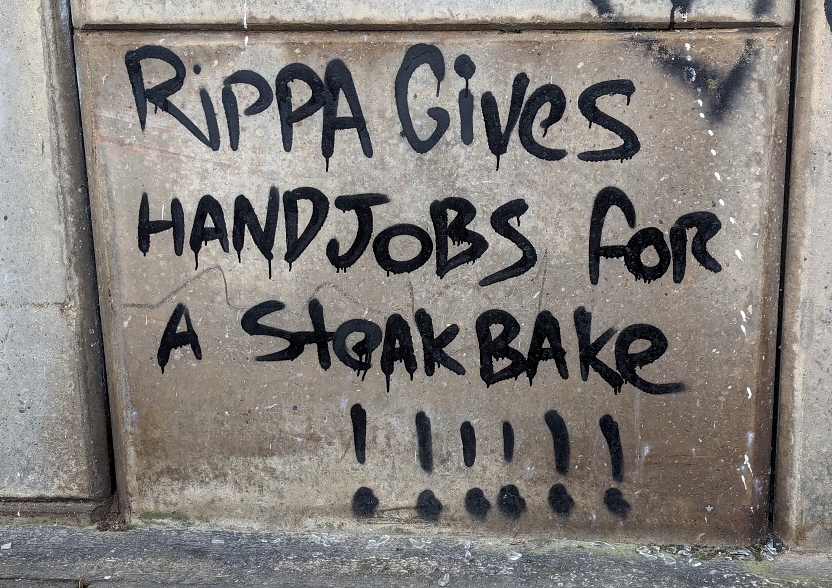 RiPPA GiveS
HANDJOBS FOR
A SteAK BAKe
!!!!!!